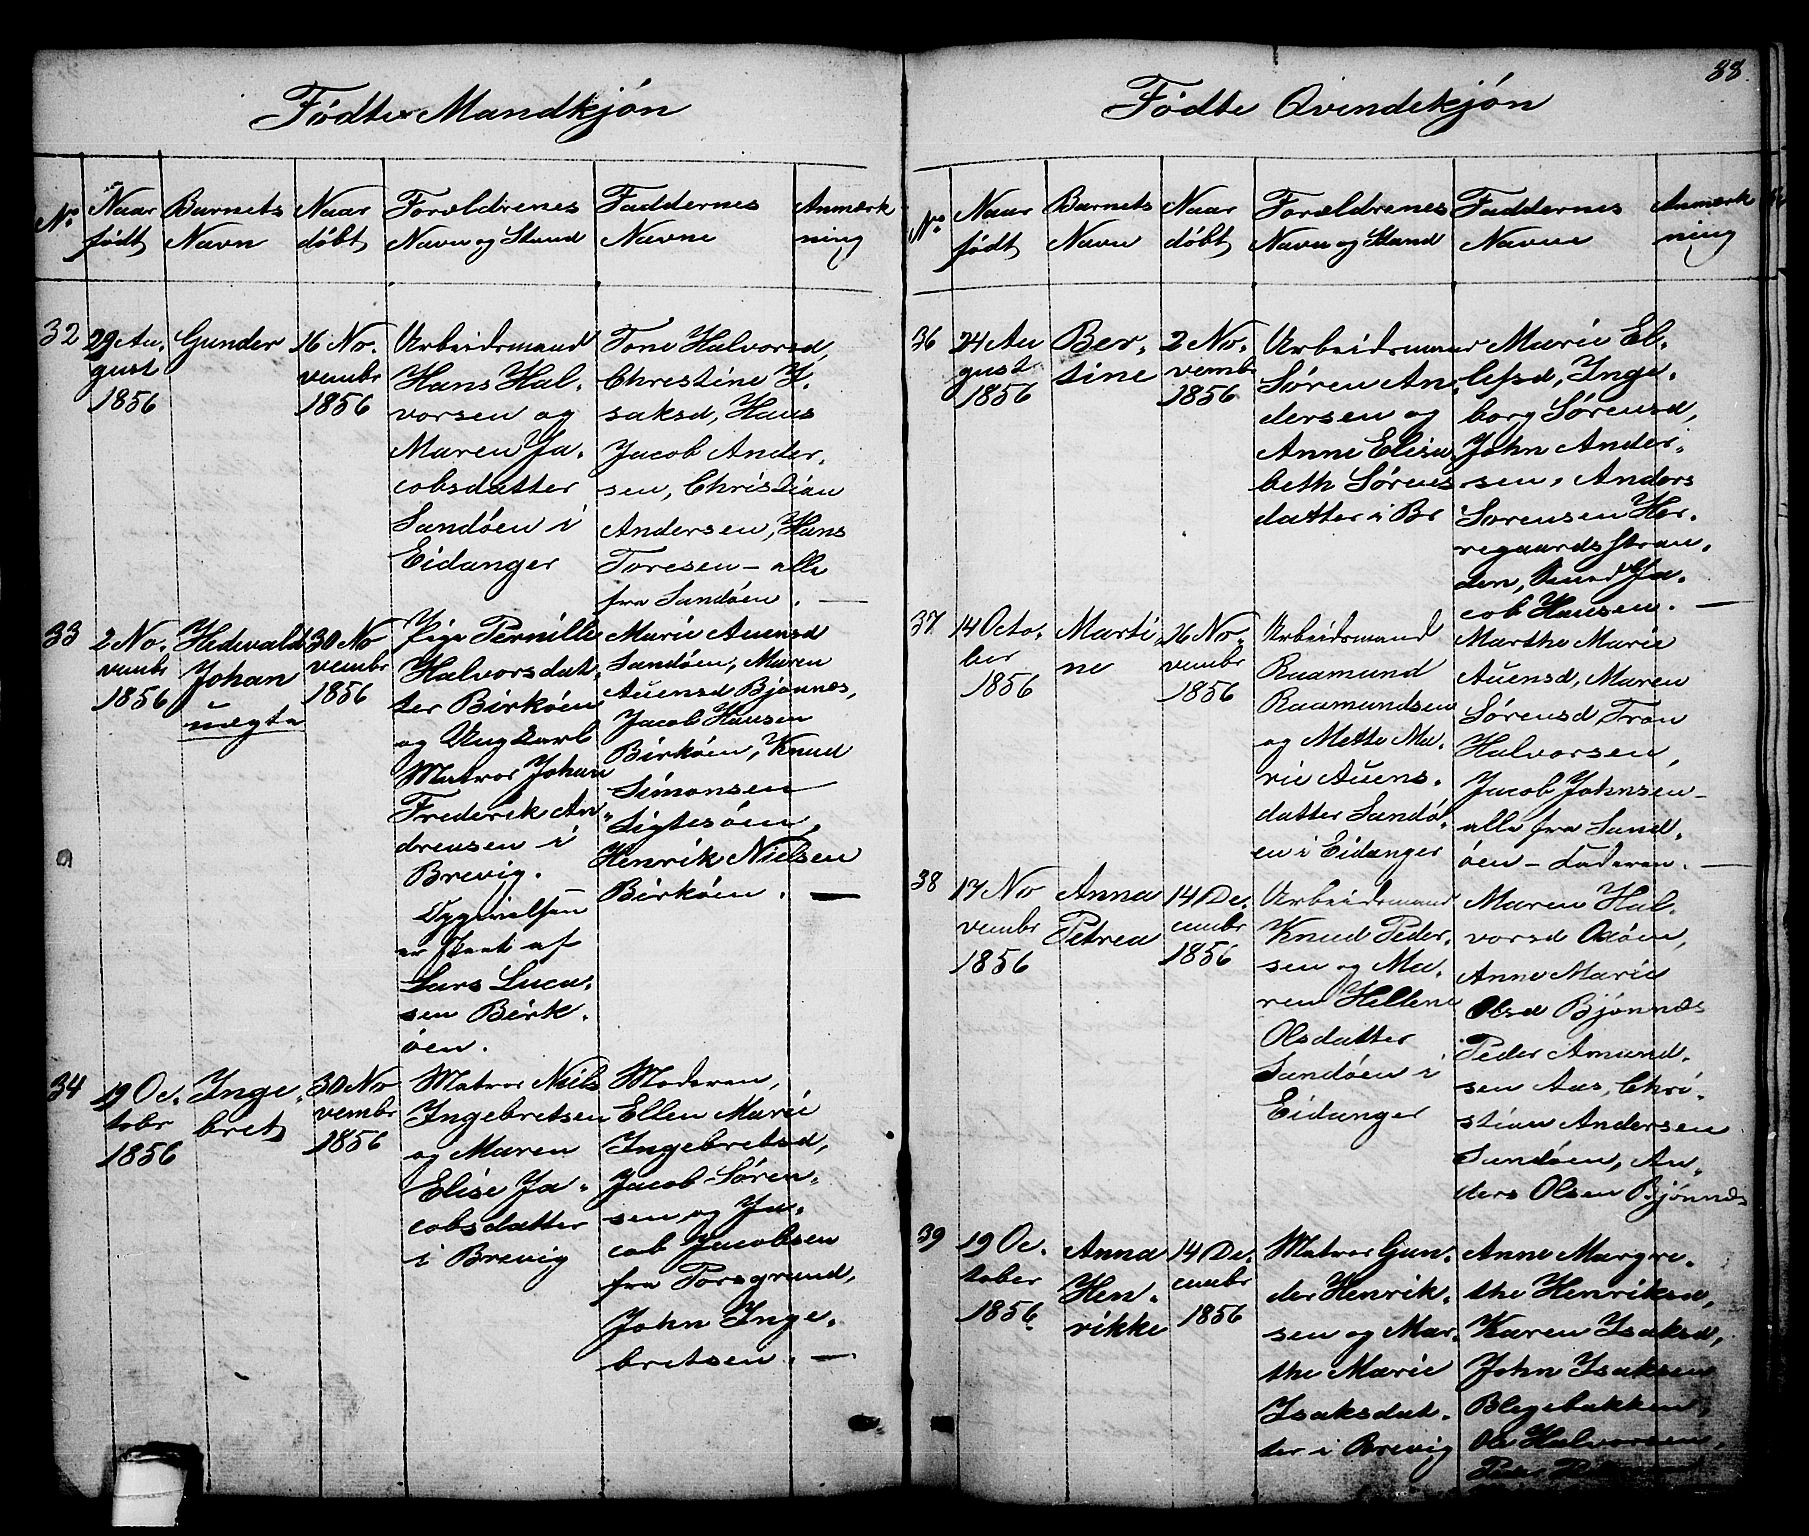 Fødte Mandkjøn
No
Naar født
Barnets Navn
Naar døbt
Forældrenes Navn og Stand
Faddernes Navne
Anmærkning
32
29 Au-
gust
1856
Gunder
16 No-
vembr
1856
Arbeidsmand
Hans Hal-
vorsen og
Maren Ja-
cobsdatter
Sandøen i
Eidanger
Tone Halvorsd,
Christine I-
saksd, Hans
Jacob Ander-
sen, Christian
Andersen, Hans
Toresen – alle
fra Sandøen. —
33
2 No-
vembr
1856
Hedevald
Johan
uægte
30 No
vembr
1856
Pige Pernille
Halvorsdat-
ter Birkøen
og Ungkarl
Matros Johan
Frederik An-
drensen i
Brevig.
er
af
Lars Luca-
sen Birk-
øen.
Marie Auensd
Sandøen, Maren
Auensd Bjønnes,
Jacob Hansen
Birkøen, Knud
Simonsen
Sigtesøen,
Henrik Nielsen
Birkøen. —
34
19 Oc-
tobr
1856
Inge-
bret
30 No
vembr
1856
Matros Niels
Ingebretsen
og Maren
Elise Ja-
cobsdatter
i Brevig
Moderen,
Ellen Marie
Ingebretsd,
Jacob Søren-
sen, og Ja-
cob Jacobsen
fra Porsgrund,
John Inge-
bretsen. —
88.
Fødte Qvindekjøn
No
Naar født
Barnets Navn
Naar døbt
Forældrenes Navn og Stand
Faddernes Navne
Anmærkning
36
24 Au
gust
1856
Ber-
tine
2 No-
vembr
1856
Arbeidsman
Søren An-
dersen og
Anne Elisa
beth Sørens
datter i Br
Marie El-
lefsd, Inge-
borg Sørensd,
John Ander-
sen, Anders
Sørensen Her-
regaardsstran-
den, Ja-
cob Hansen. —
37
14 Octo-
ber
1856
Marti
ne
16 No-
vembr
1856
Arbeidsmand
Raamund
Raamundsen
og Mette Ma-
rie Auens-
datter Sandø-
en i Eidanger
Marthe Marie
Auensd, Maren
Sørensd Tron
Halvorsen,
Jacob Johnsen –
alle fra Sand-
øen – Faderen. —
38
17 No
vembr
1856
Anna
Petrea
14 De-
cembr
1856
Arbeidsmand
Knud Peder-
sen og Ma-
ren Hellene
Olsdatter
Sandøen i
Eidanger
Maren Hal-
vorsd Oxøen,
Anne Marie
Olsd Bjønnæs
Peder Amund-
sen Aas, Chri-
stian Andersen
Sandøen, An-
ders Olsen Bjønnæs
39
19 Oc-
tober
1856
Anna
Hen-
rikke
14 De-
cembr
1856
Matros Gun-
der Henrik-
sen og Mar-
the Marie
Isaksdat-
ter i Brevig
Anne Margre-
the Henriksd,
Karen Isaksd,
John Isaksen
Blegebakken,
Ole Halvorsen,